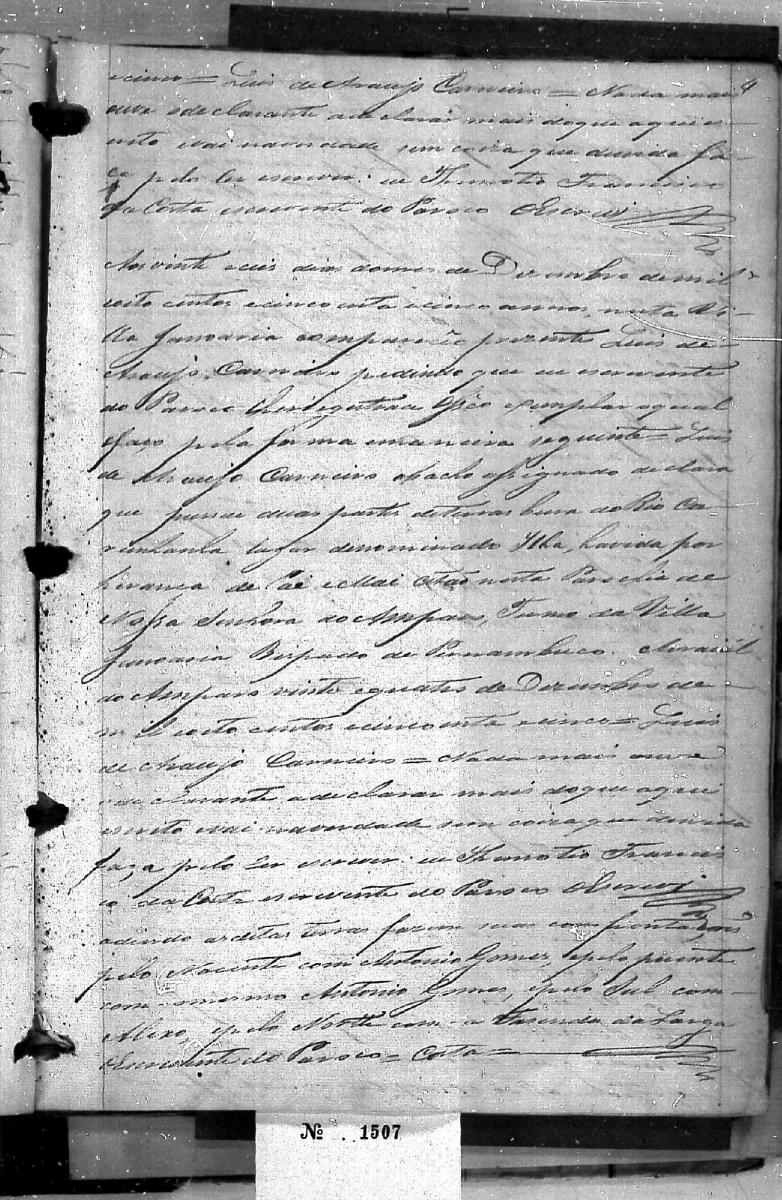 ecinco = Luis de Araujo Carneiro = Nada mais 4
ouve odeclarante adeclarar mais doque aqui es-
crito vai naverdade sem coiza que duvida fa-
ça pelo ler escrever: eu Thimotio Francisco
da Costa escrevente do Paroco oEscrevi
Aos vinte eseis dias domes de Dezembro de mil
oito centos ecincoenta ecinco annos, nesta Vi-
lla Januaria compareceo prezente Luis de
Araujo Carneiro pedindo que eu escrevente
do Paroco lhe registrace exemplar oqual
efaço pela forma emaneira seguinte = Luis
de Araujo Carneiro abacho assignado declara
que pussue duas partes deterras beira do Rio Ca-
runhanha lugar denominado Ilha, havida por
herança de Pai eMai citas nesta Parochia de
Nossa Senhora do Amparo, Termo da Villa
Januaria Bispado de Pernambuco. Arraial
do Amparo vinte equatro de Dezembro de
mil eoito centos ecincoenta ecinco = Luis
de Araujo Carneiro = Nada mais ouve
odeclarante adeclarar mais doque aqui
escrito vai naverdade sem coiza que duvida
faça pelo ler escrever: eu Thimotio Francis
co da Costa escrevente do Paroco oEscrevi
adindo asditas terras fazem suas comfrontaçois
pelo Nacente com Antonio Gomes, epelo puente
com omesmo Antonio Gomes, epelo Sul com
Aleixo, epelo Norte com a Fazenda da Larga
oEscrevente do Paroco = Costa =
№ 1507